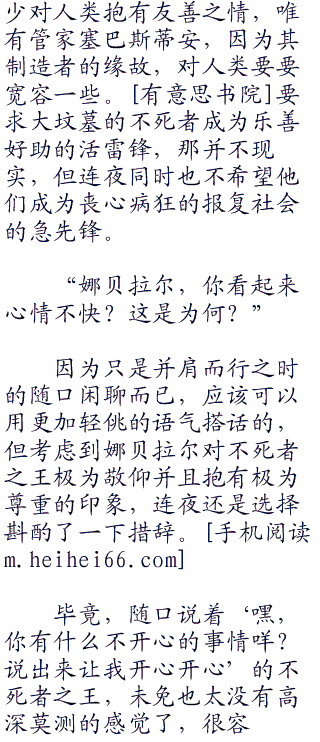 少对人类抱有友善之情，唯
有管家塞巴斯蒂安，因为其
制造者的缘故，对人类要要
宽容一些。[有意思书院]要
求大坟墓的不死者成为乐善
好助的活雷锋，那并不现
实，但连夜同时也不希望他
们成为丧心病狂的报复社会
的急先锋。
“娜贝拉尔，你看起来
心情不快？这是为何？”
因为只是并肩而行之时
的随口闲聊而已，应该可以
用更加轻佻的语气搭话的，
但考虑到娜贝拉尔对不死者
之王极为敬仰并且抱有极为
尊重的印象，连夜还是选择
斟酌了一下措辞。[手机阅读
m.heihei66.com]
毕竟，随口说着‘嘿，
你有什么不开心的事情咩？
说出来让我开心开心’的不
死者之王，未免也太没有高
深莫测的感觉了，很容